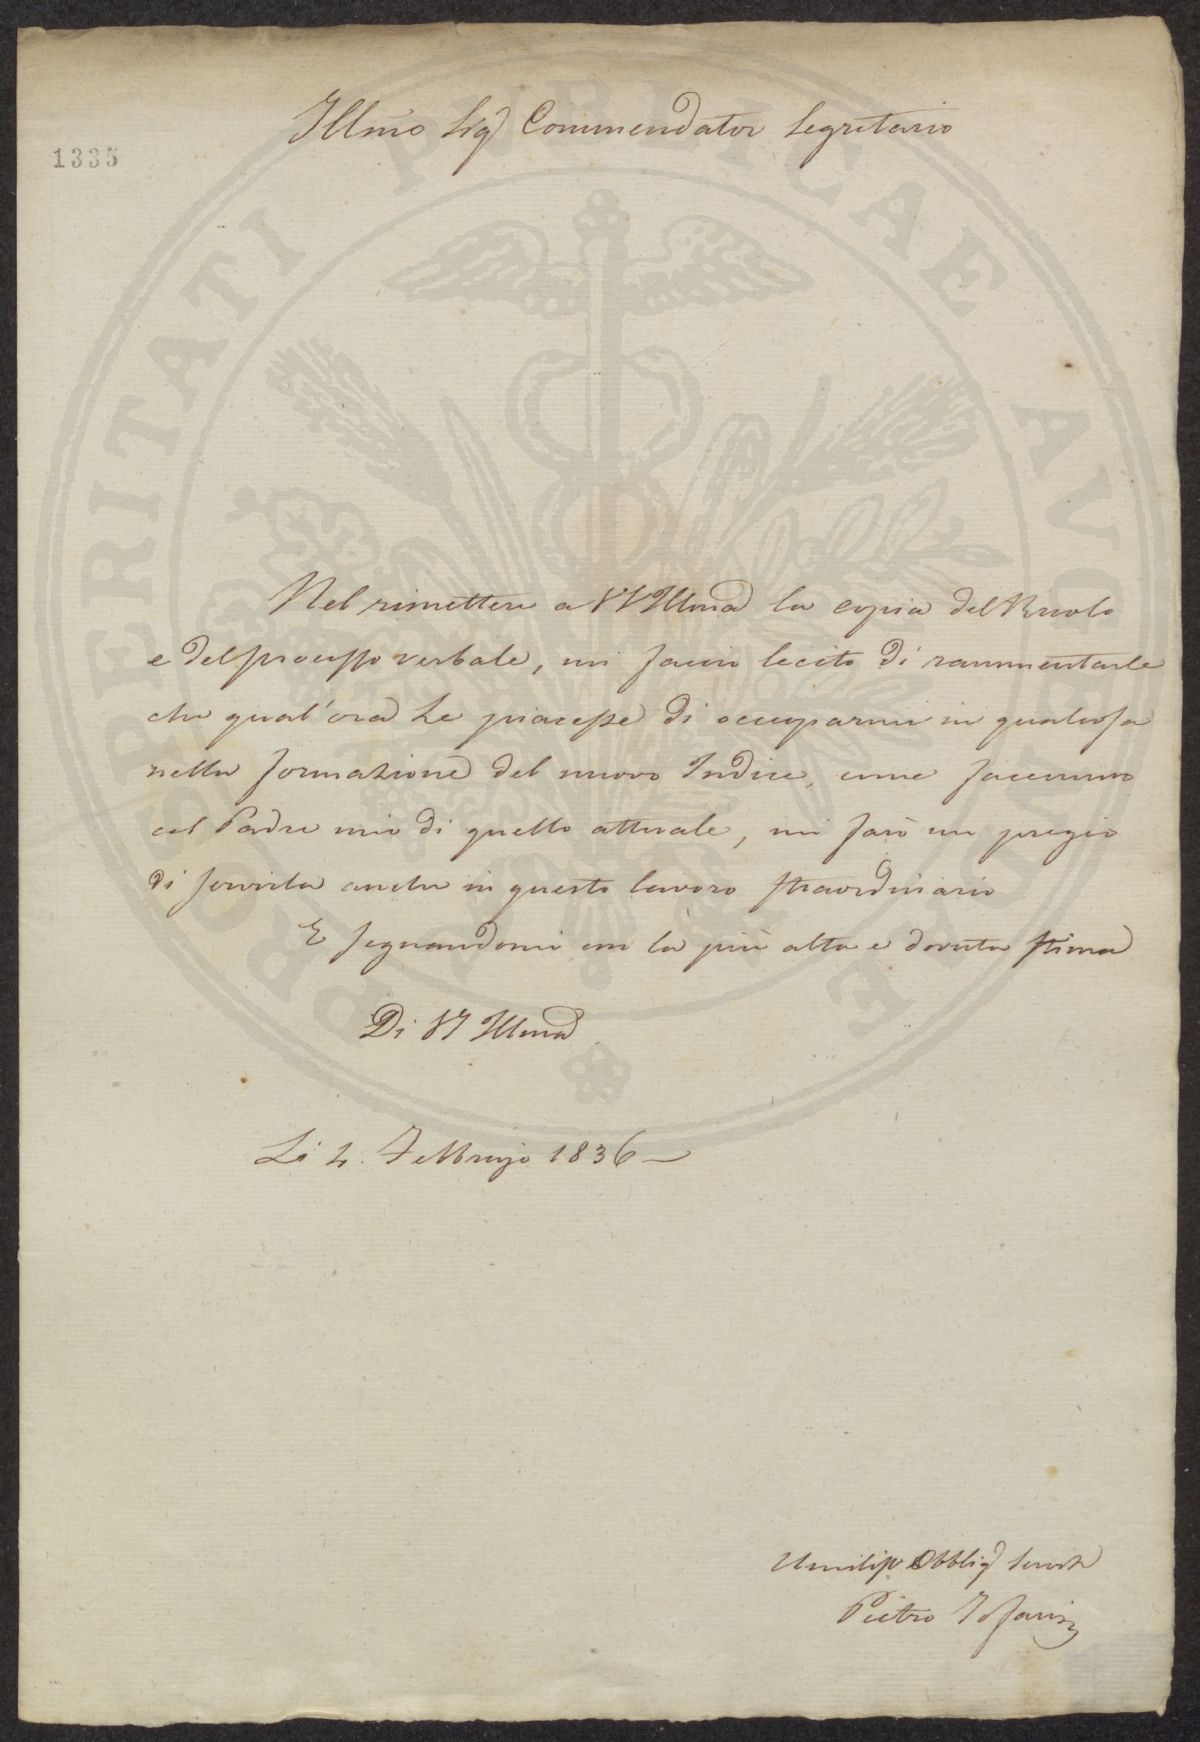 Illmo Sig Commendator Segretario
1335
Nel rimettere a VS Illma la copia del Ruolo
e del processo verbale, mi faccio lecito di rammentarle
che qual'ora Le piacesse di occuparmi in qualcosa
nella formazione del nuovo Indice, come facemmo
col Padre mio di quello attuale, mi farò un pregio
di servirla anche in questo lavoro straordinario
E segnandomi con la più alta e dovuta stima
Di VS Illma
Li 4. Febbrajo 1836
Umiliss Obblig Servit
Pietro
PROSPERITATI PUBLICAE AUGENDAE